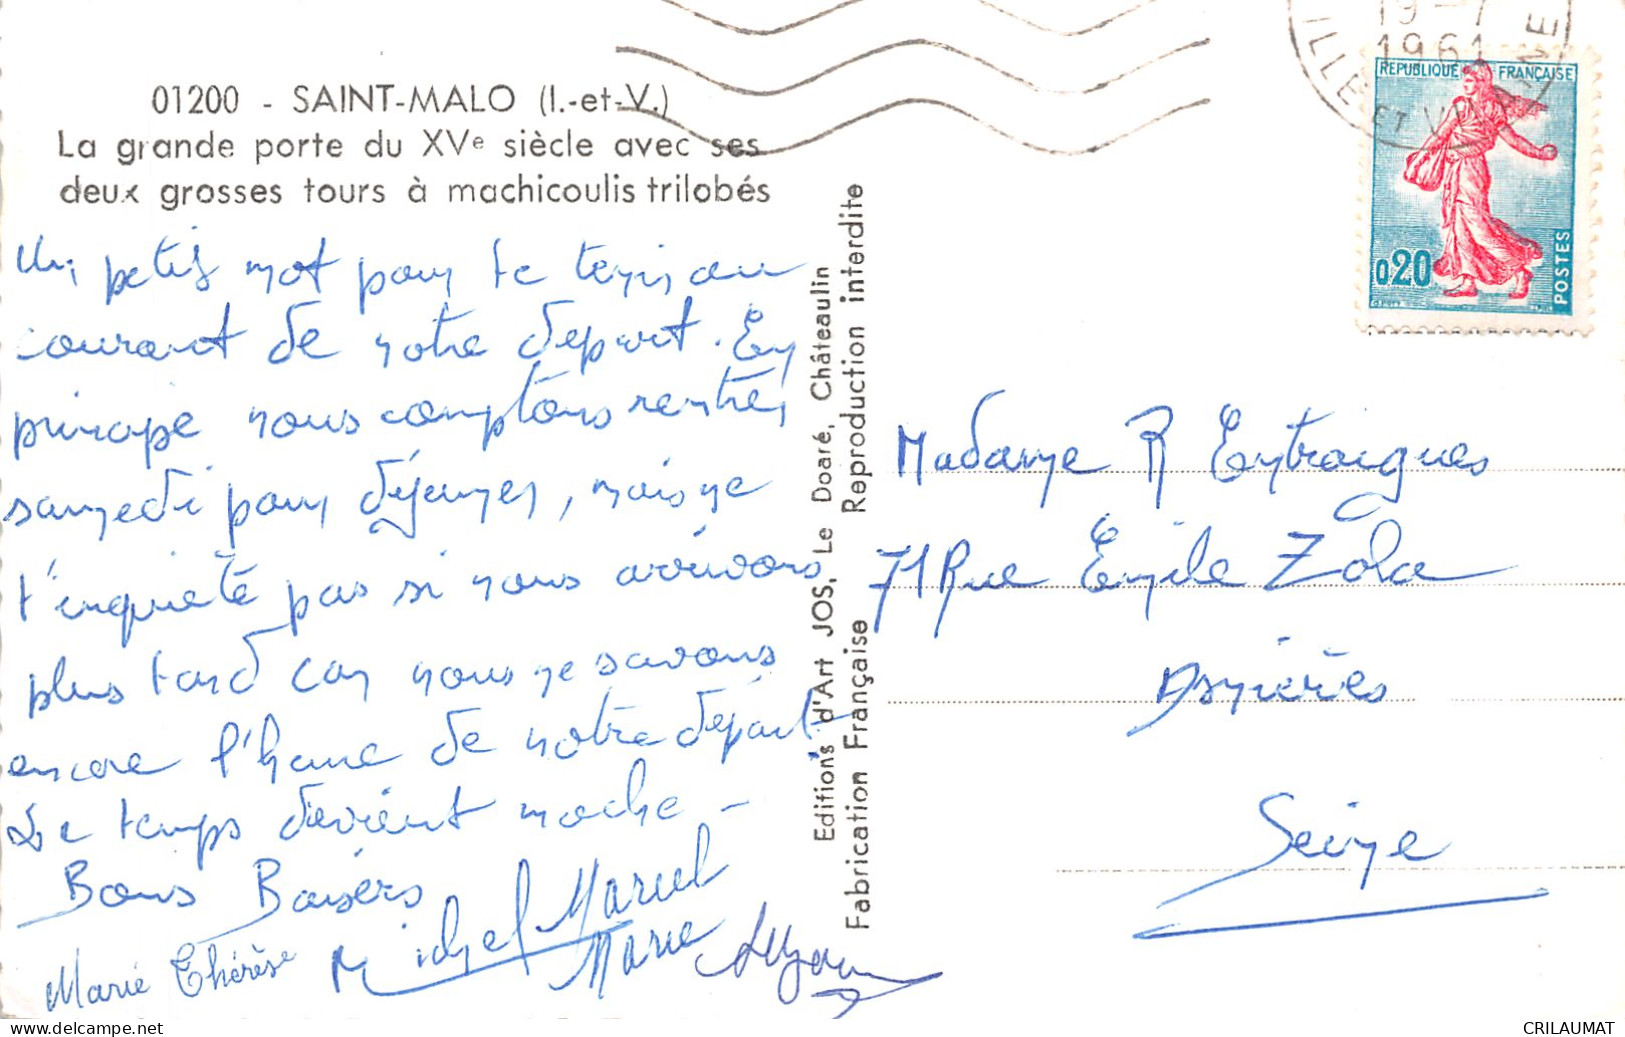 01200 - SAINT-MALO (I.-et-V.)
La grande porte du XVe siècle avec ses
deux grosses tours à machicoulis trilobés
Un petit mot pour te tenir au
courant de notre depart. En
principe nous comptons rentrer
samedi pour déjeuner, mais ne
t'inquiète pas si nous arrivons
plus tard car nous ne savons
encore l'heure de notre départ
Le temps devient moche -
Bons Baisers
Marie Thérèse
Michel
Marcel
Marie
Editions d'Art JOS, Le Doaré, Châteaulin
Fabrication Française Reproduction interdite
19-7
1961
ILLE ET VILAINE
REPUBLIQUE FRANÇAISE
0,20
POSTES
Madame R Entraigues
71 Rue Emile Zola
Asnières
Seine
delcampe.net
CRILAUMAT